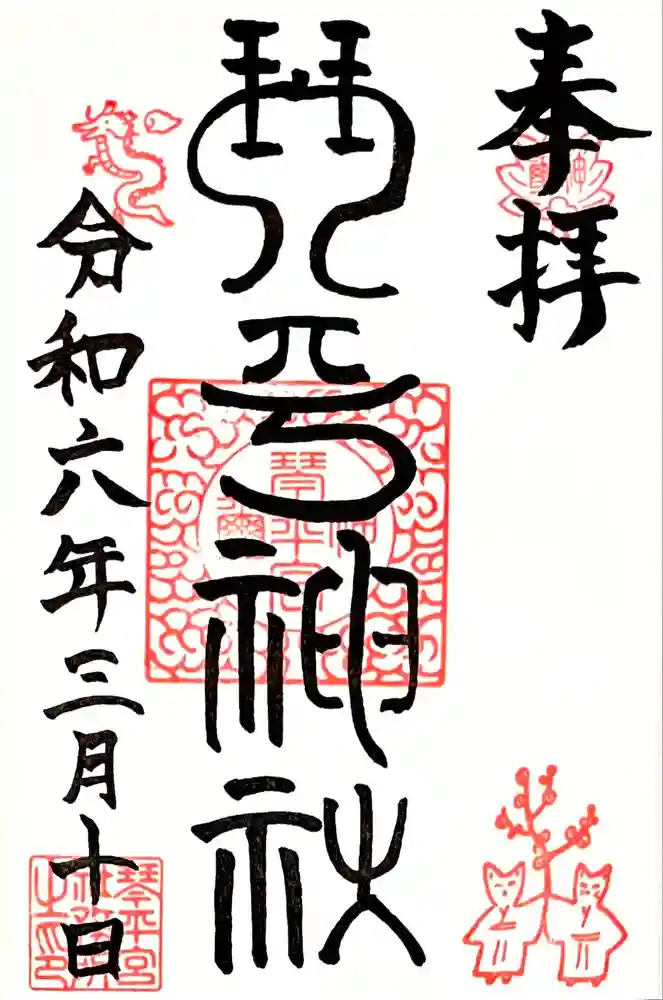 奉拝
琴平神社
令和六年三月十日
琴平宮
琴平宮
社務所
之印